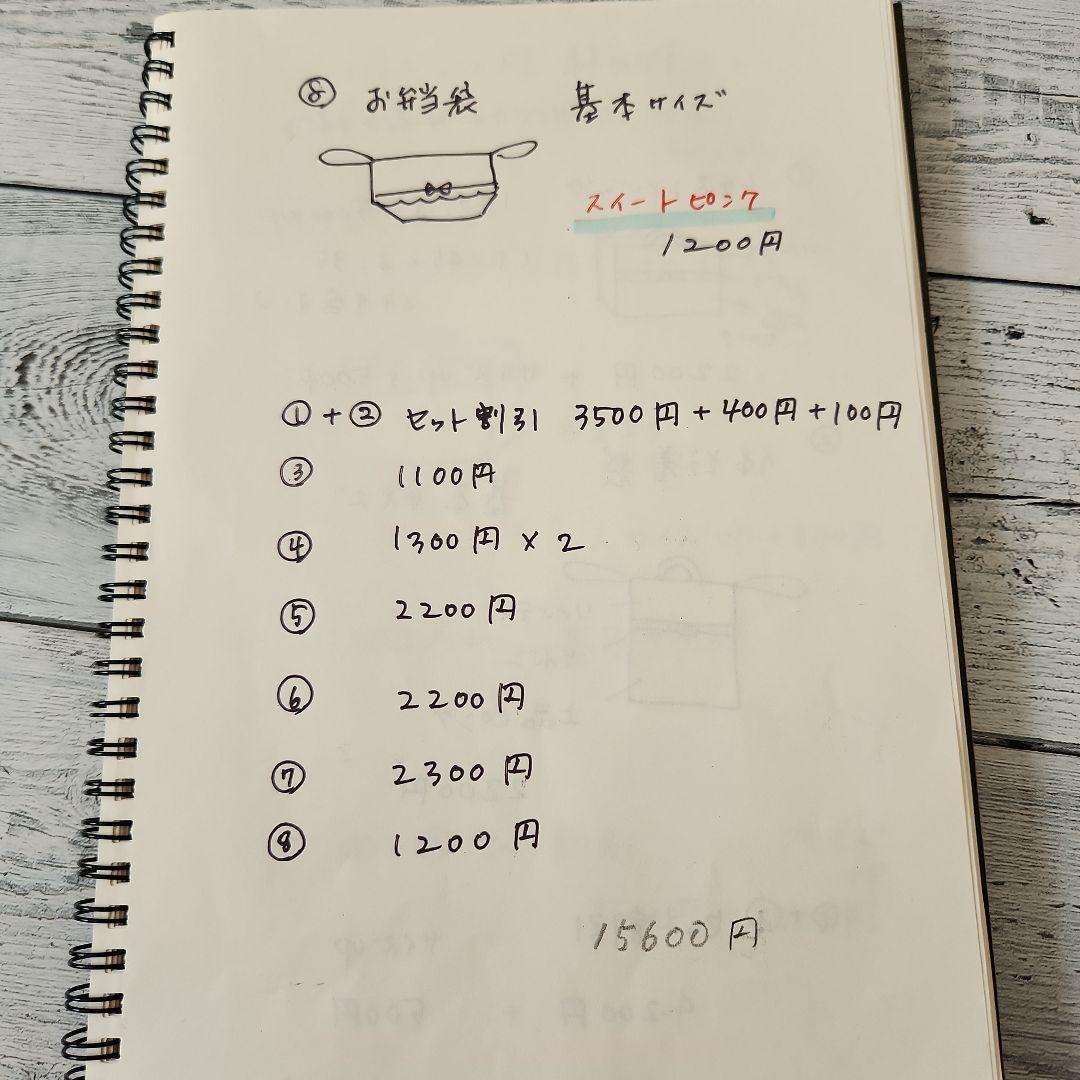 ⑧ お弁当袋 基本サイズ
スイートピンク
1200円
①+② セット割引 3500円+400円+100円
③ 1100円
④ 1300円×2
⑤ 2200円
⑥ 2200円
⑦ 2300円
⑧ 1200円
15600円